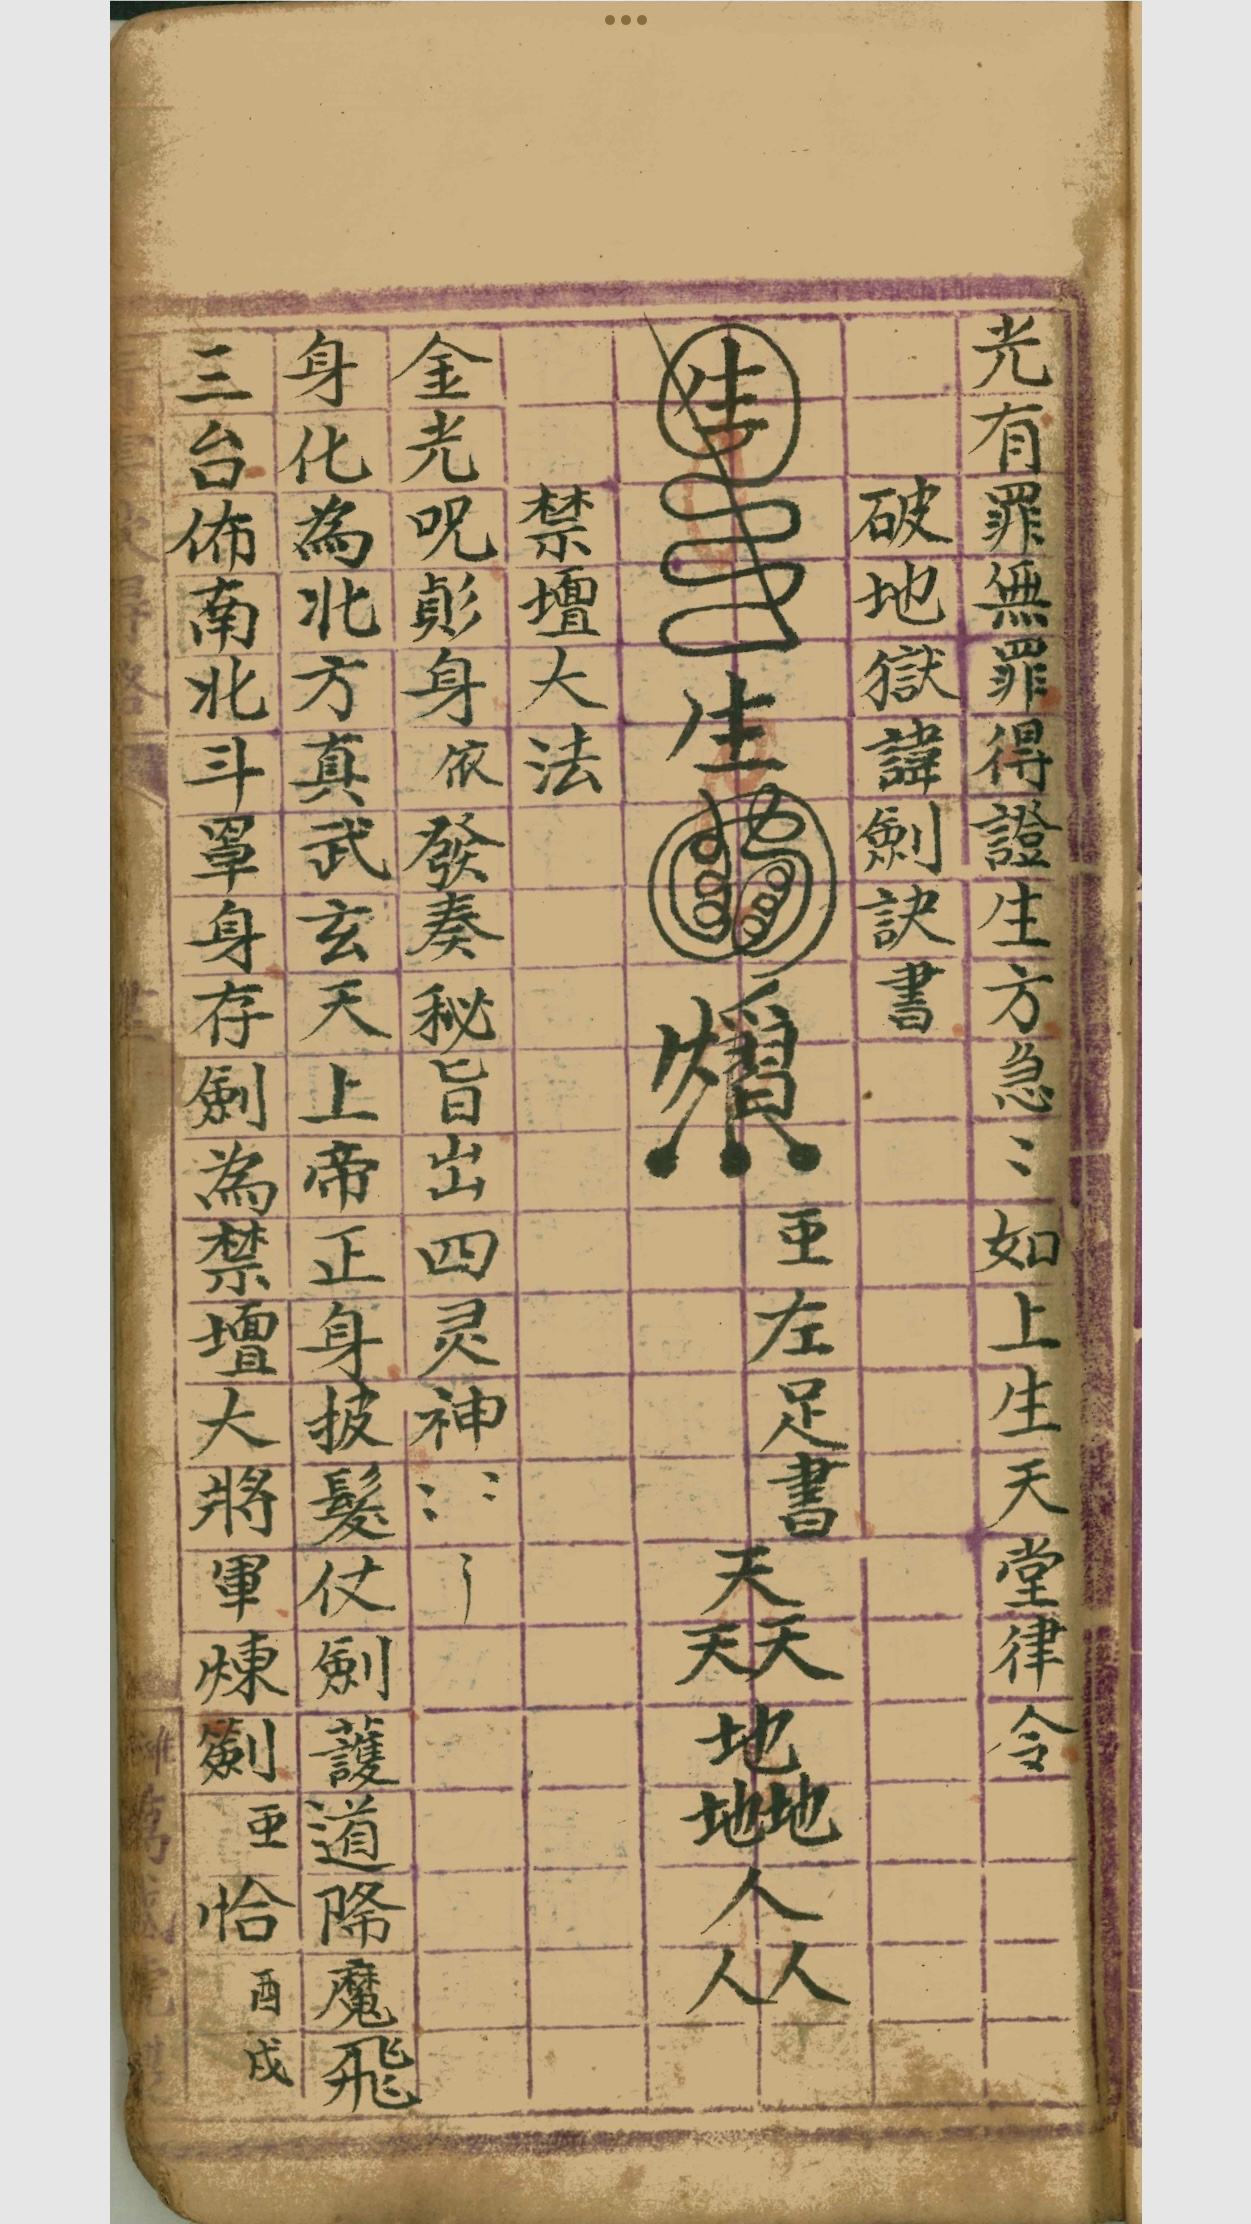 光有罪無罪得證生方急〻如上生天堂律令
破地獄諱劍訣書
生
生
亚左足書
天
天天
地
地地
人
人人
禁壇大法
金光呪身依發奏秘旨出四灵神〻〻
身化為北方真武玄天上帝正身披髮仗劍護道降魔飛
三台佈南北斗罩身存劍為禁壇大將軍煉劍亚恰酉戌